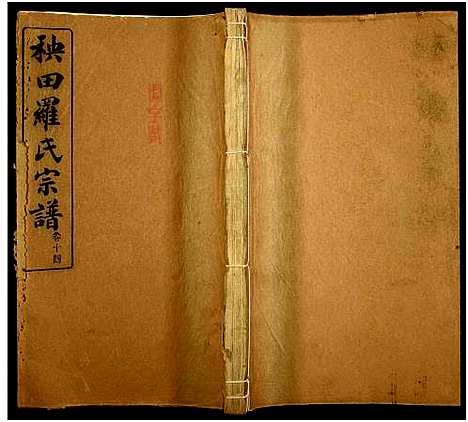 秧田羅氏宗譜
卷十四